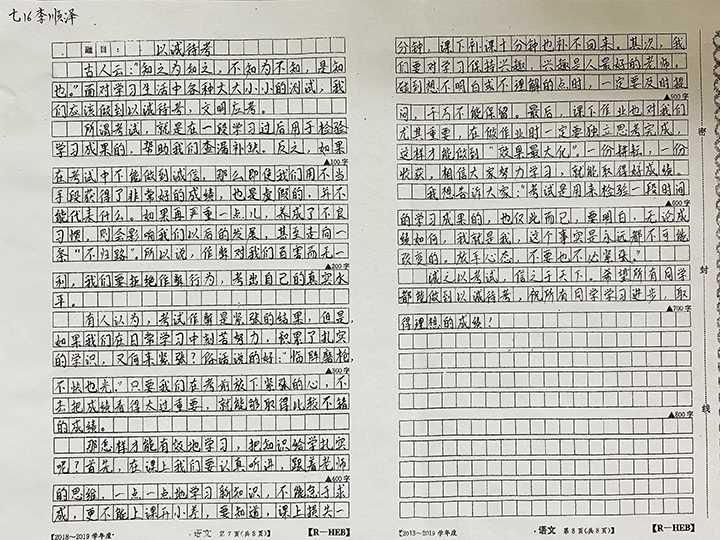 七16 李顺泽
题目：以诚待考
古人云："知之为知之，不知为不知，是知
也。"面对学习生活中各种大大小小的测试，我
们应该做到以诚待考，文明应考。
所谓考试，就是在一段学习过后用于检验
学习成果的，帮助我们查漏补缺。反之，如果
▲100字
在考试中不能做到诚信，那么即使我们用不当
手段获得了非常好的成绩，也是虚假的，并不
能代表什么。如果再严重一点儿，养成了不良
习惯，则会影响我们以后的发展，甚至走向一
条"不归路"。所以说，作弊对我们百害而无一
▲200字
利，我们要拒绝作弊行为，考出自己的真实水
平。
有人认为，考试作弊是紧张的结果，但是，
如果我们在日常学习中刻苦努力，积累了扎实
的学识，又何来紧张？俗话说的好："临阵磨枪，
▲300字
不快也光。"只要我们在考前放下紧张的心，不
去把成绩看得太过重要，就能够取得比较不错
的成绩。
那怎样才能有效地学习，把知识给学扎实
呢？首先，在课上我们要认真听讲，跟着老师
▲400字
的思维，一点一点地学习新知识，不能急于求
成，更不能上课开小差，要知道，课上损失一
【2018～2019学年度 ·语文 第7页(共8页) 【R－HEB】
分钟，课下补课十分钟也补不回来。其次，我
们要对学习保持兴趣，兴趣是人最好的老师。
做到想不明白或不理解的点时，一定要及时提
▲500字
问，千万不能保留。最后，课下作业也对我们
尤其重要，在做作业时一定要独立思考完成，
这样才能做到"效果最大化"。一份耕耘，一份
收获，相信大家努力学习，就能取得好成绩。
我想告诉大家："考试是用来检验一段时间
▲600字
的学习成果的，也仅此而已，要明白，无论成
绩如何，我就是我，这个事实是永远都不可能
改变的。放平心态，不要也不必紧张。"
诚之以考试，信之于天下。希望所有同学
都能做到以诚待考，祝所有同学学习进步，取
▲700字
得理想的成绩！
▲800字
【2018～2019学年度 ·语文 第8页(共8页) 【R－HEB】
密
封
线